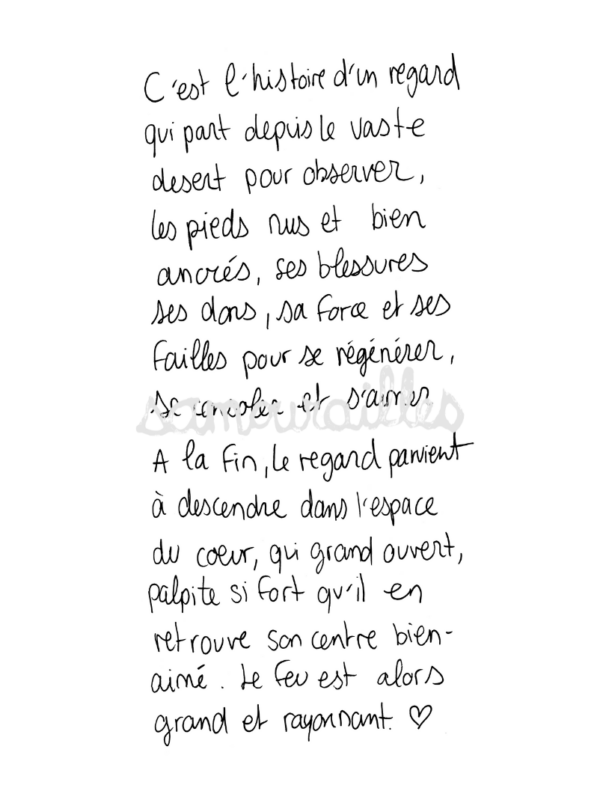 C'est l'histoire d'un regard
qui part depuis le vaste
desert pour observer,
les pieds nus et bien
ancrés, ses blessures
ses dons, sa force et ses
failles pour se régénérer,
se et s'aimer
samouraille
A la fin, le regard parvient
à descendre dans l'espace
du coeur, qui grand ouvert,
palpite si fort qu'il en
retrouve son centre bien-
aimé. Le feu est alors
grand et rayonnant. ♡